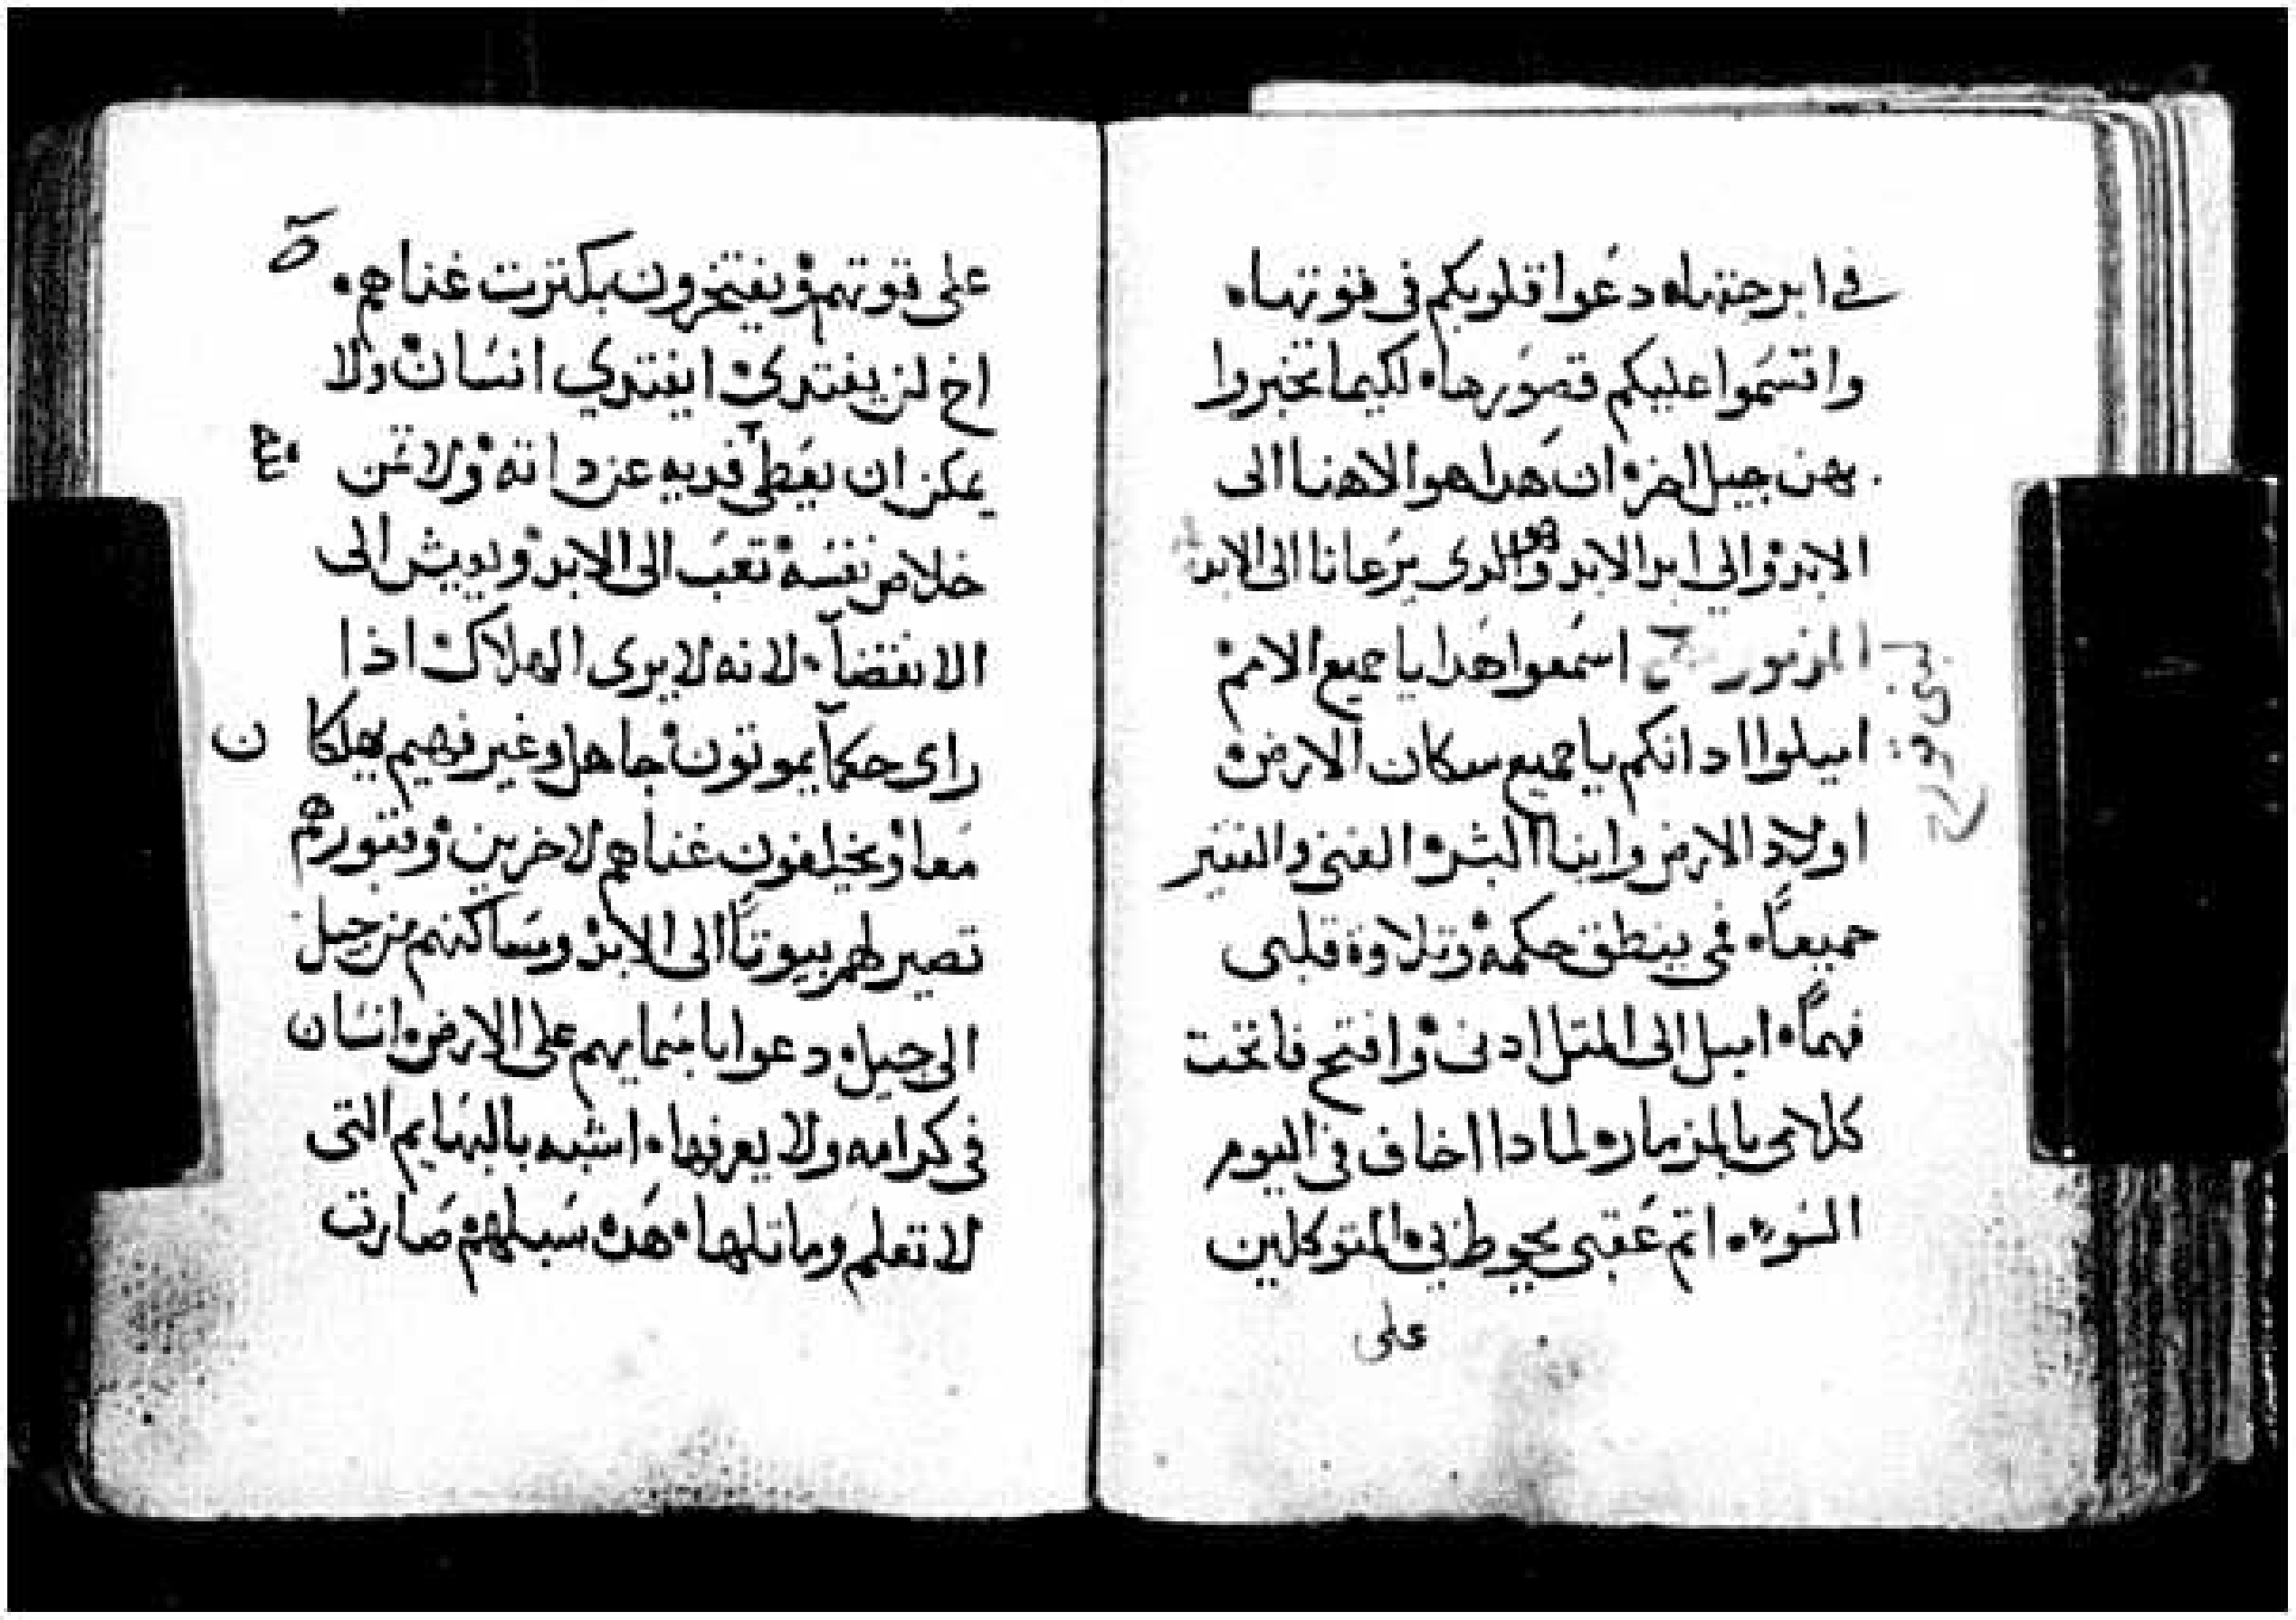 في ابرجتها۰ دعوا قلوبكم في قوتها۰
واقتسموا عليكم قصورها۰ لكيما تخبروا
بهن جيل اخر۰ ان هدا هو الاهنا الى
الابد۰ والي ابد الابد۰ وهو الدى يرعانا الى الابد
المزمور اسمعوا هدا يا جميع الامم۰
لبنى قورح
اميلوا ادانكم يا جميع سكان الارض۰
اولاد الارض وابنا البشر۰ الغنى والفقير
جميعاً۰ فمي ينطق حكمه۰ وتلاوة قلبى
فهماً۰ اميل الى المتل ادنى۰ وافتح فاتحت
كلامى بالمزمار۰ لمادا اخاف فى اليوم
السوء۰ اتم عقبى يحوط بي۰ المتوكلين
على
على قوتهم۰ ويفتخرون بكترت غناهم۰ ه
اخ لن يفتدي۰ ايفتدي انسان۰ ولا
يمكن ان يعطى فديه عن داته۰ ولا تمن
خلاص نفسه۰ تعب الى الابد۰ ويعيش الى
الانقضآ۰ لانه لا يرى الهلاك۰ اذا
راى حكمآ يموتون۰ جاهل وغير فهيم يهلكا ن
معا۰ ويخيلفون غناهم لاخرين۰ وقبورهم
تصير لهم بيوتاً الى الابد۰ ومساكنهم من جيل
الى جيل۰ دعوا باسمايهم على الارض۰ انسان
في كرامه ولا يعرفها۰ اشبه بالبهايم التى
لا تعلم وماتلها۰ هده سبلهم۰ صارت